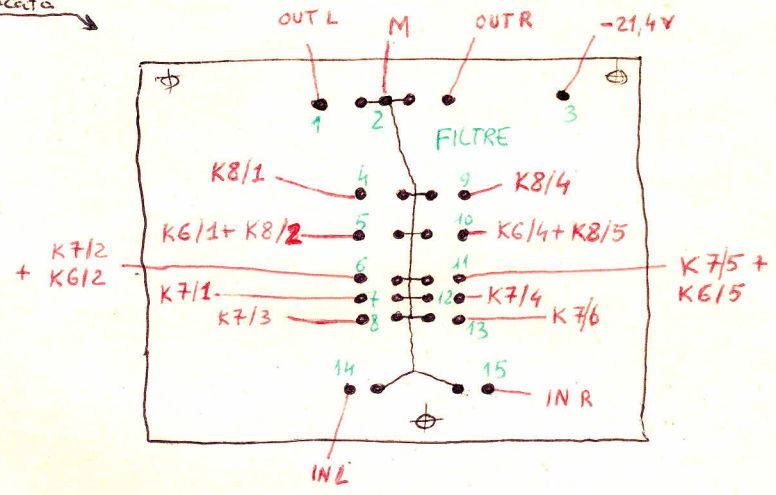 OUT L M OUT R -21,4V
1 2 3
FILTRE
K8/1 4 9 K8/4
K6/1+ K8/2 5 10 K6/4+ K8/5
K7/2
+ K6/2
6 11
K7/5 +
K6/5
K7/1 7 12 K7/4
K7/3 8 13 K7/6
14 15
IN R
IN L